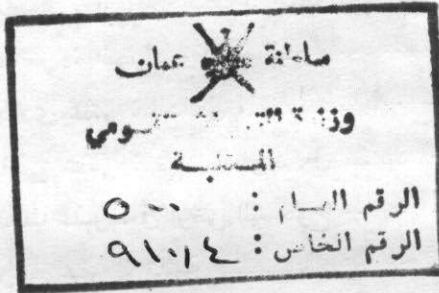 سلطنة عمان
وزارة التراث القومي
المكتبة
الرقم العام : ٥٠٠
الرقم الخاص : ٩١٠,٤